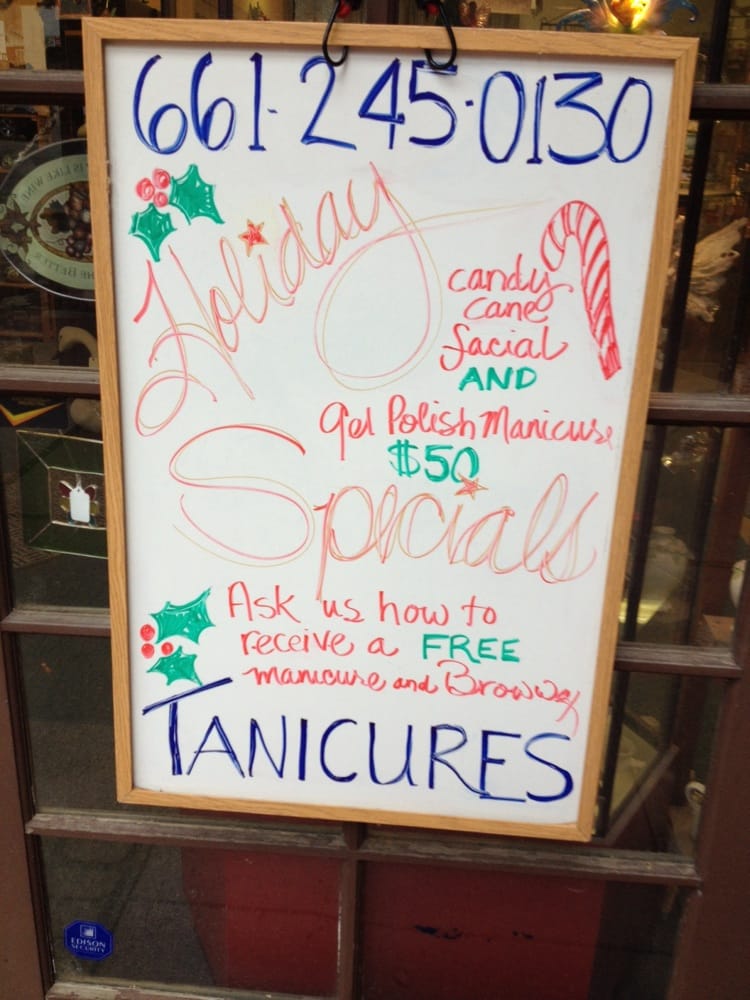 661-245-0130
Holiday
candy
cane
facial
AND
gel Polish Manicure
$50
Specials
Ask us how to
receive a FREE
manicure and Brow wax
TANICURES
EDISON
SECURITY